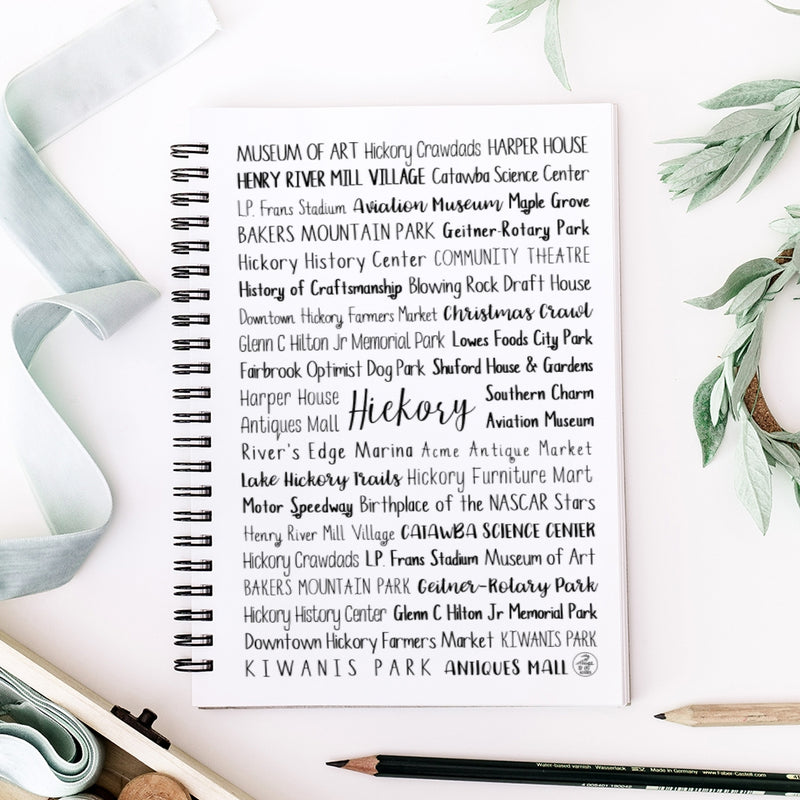 MUSEUM OF ART Hickory Crawdads HARPER HOUSE
HENRY RIVER MILL VILLAGE Catawba Science Center
L.P. Frans Stadium Aviation Museum Maple Grove
BAKERS MOUNTAIN PARK Geitner-Rotary Park
Hickory History Center COMMUNITY THEATRE
History of Craftsmanship Blowing Rock Draft House
Downtown Hickory Farmers Market Christmas Crawl
Glenn C Hilton Jr Memorial Park Lowes Foods City Park
Fairbrook Optimist Dog Park Shuford House & Gardens
Harper House
Antiques Mall
Hickory
Southern Charm
Aviation Museum
River's Edge Marina Acme Antique Market
Lake Hickory Trails Hickory Furniture Mart
Motor Speedway Birthplace of the NASCAR Stars
Henry River Mill Village CATAWBA SCIENCE CENTER
Hickory Crawdads L.P. Frans Stadium Museum of Art
BAKERS MOUNTAIN PARK Geitner-Rotary Park
Hickory History Center Glenn C Hilton Jr Memorial Park
Downtown Hickory Farmers Market KIWANIS PARK
KIWANIS PARK ANTIQUES MALL
Water-based varnish Wasserlack Made in Germany www.Faber-Castell.com